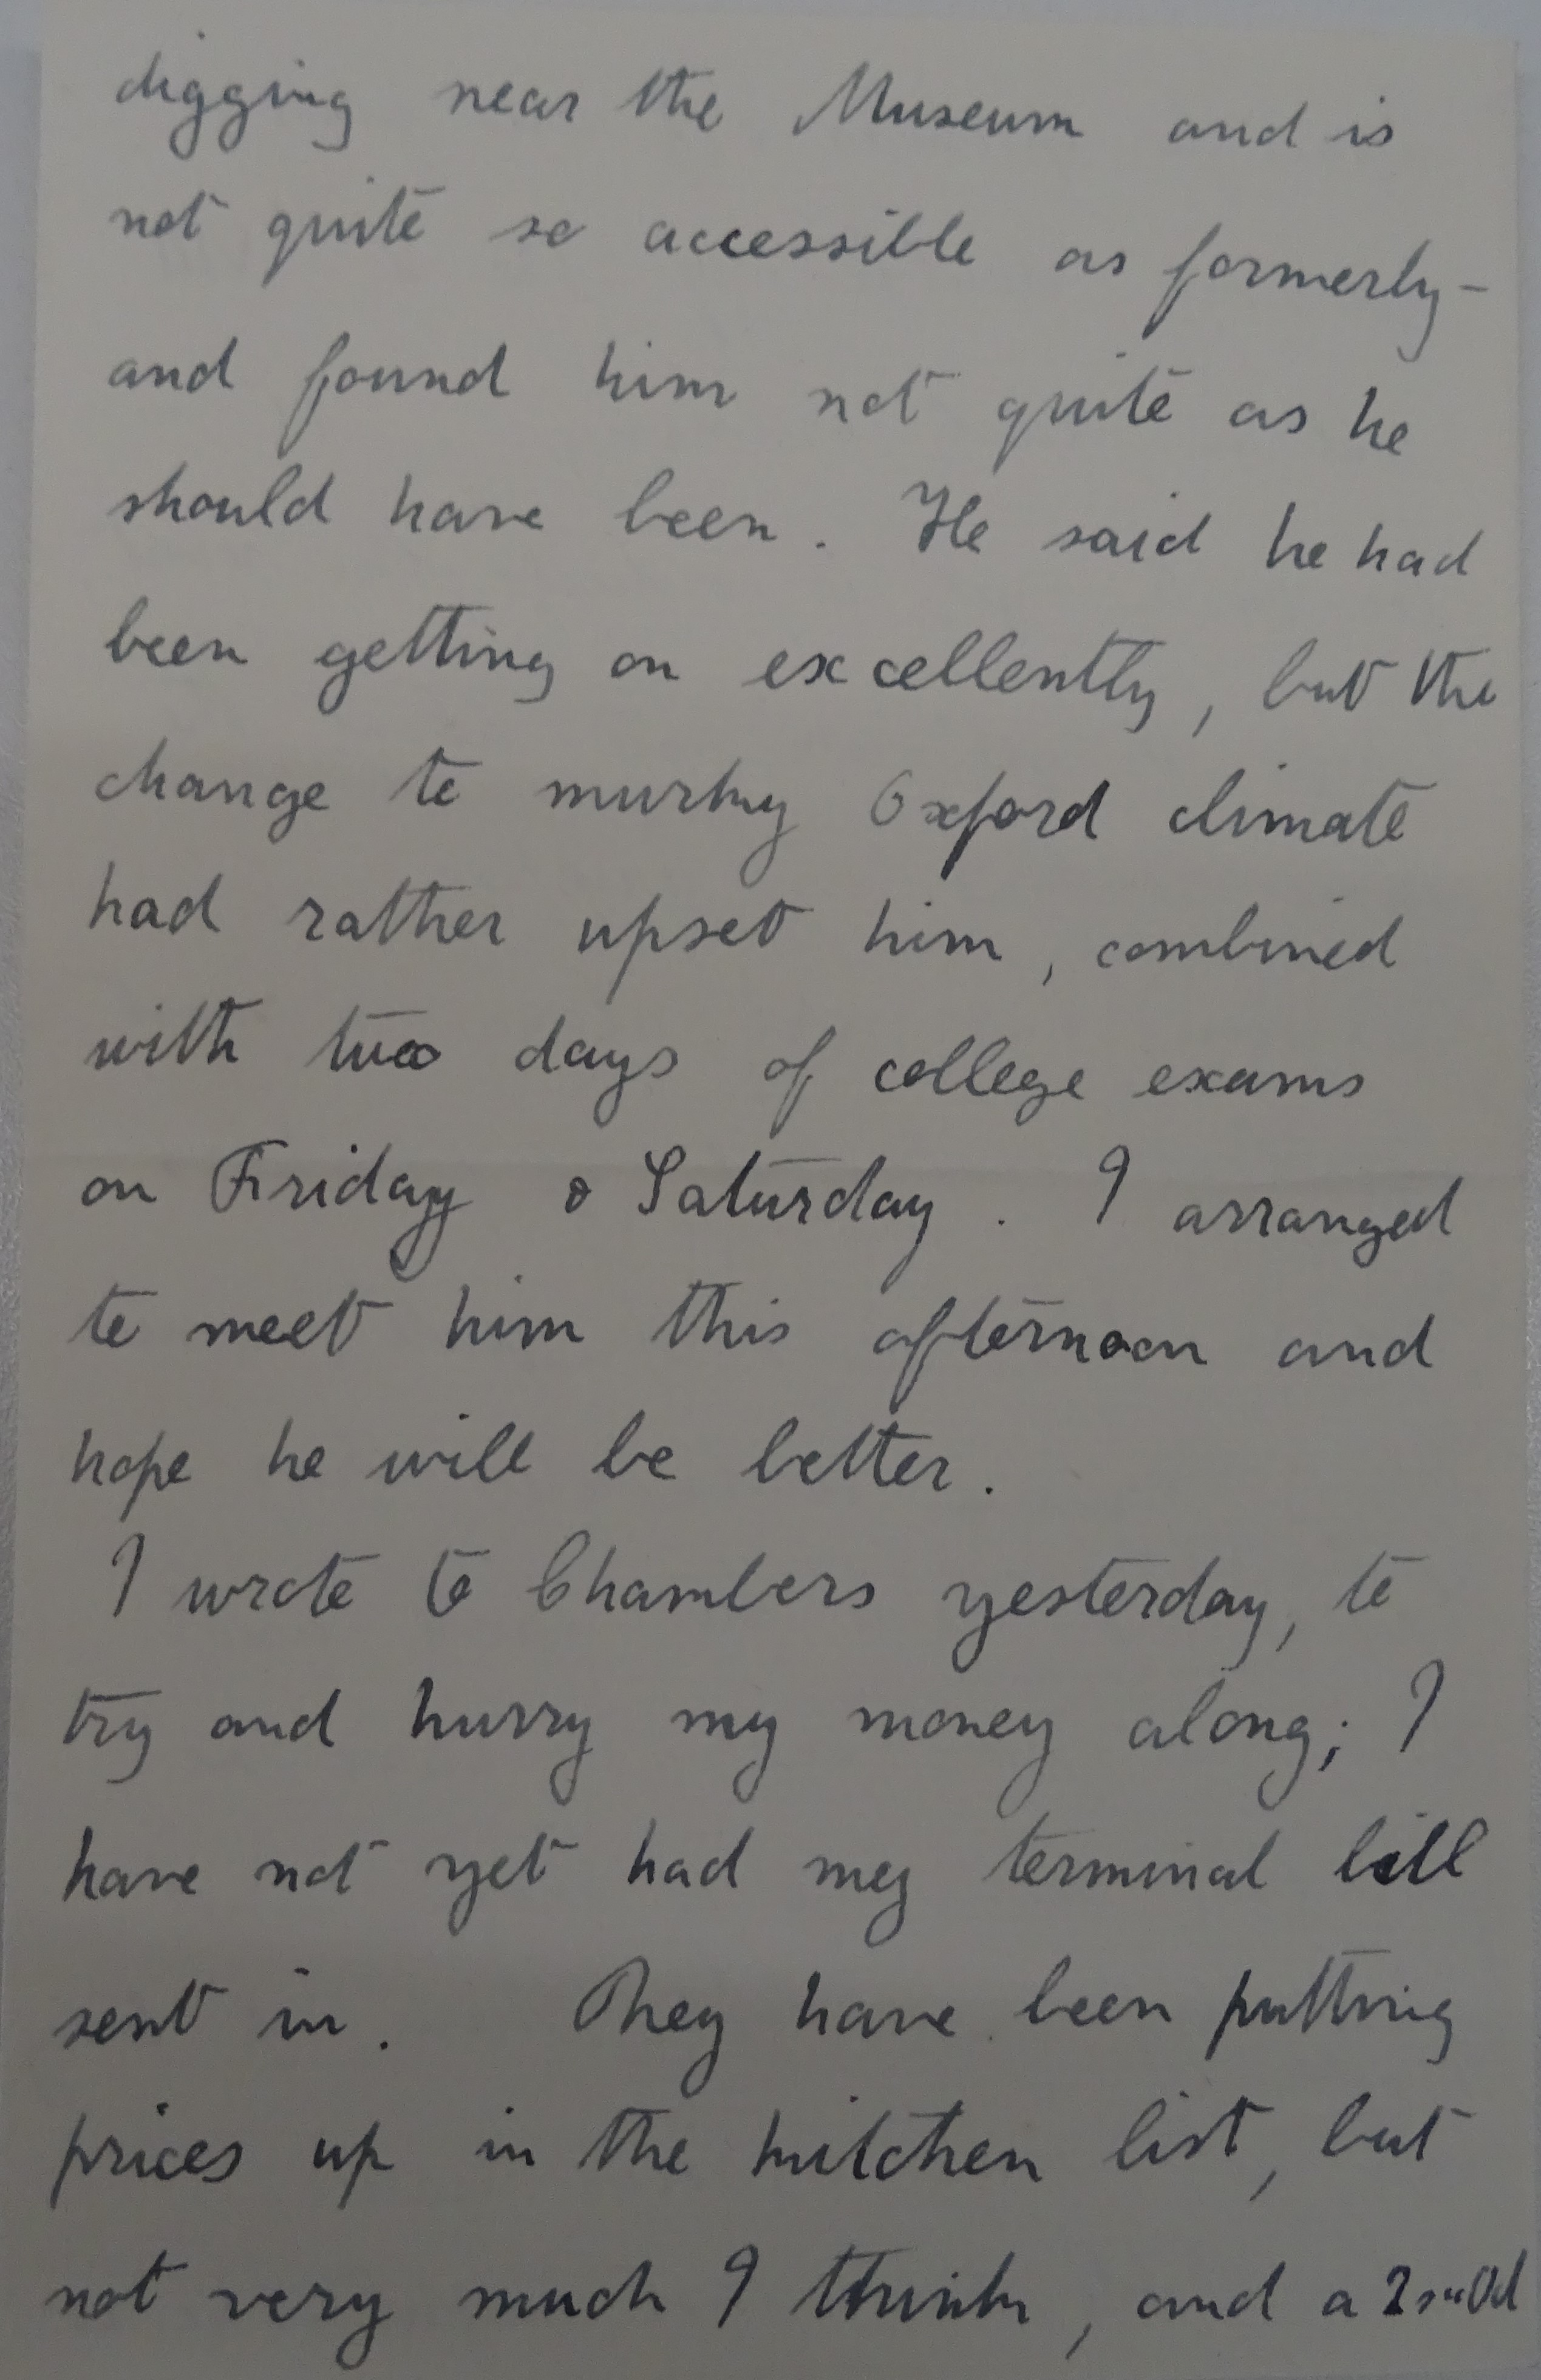 digging near the Museum and is
not quite so accessible as formerly -
and found him not quite as he
should have been. He said he had
been getting on excellently, but the
change to murky Oxford climate
had rather upset him, combined
with two days of college exams
on Friday & Saturday. I arranged
to meet him this afternoon and
hope he will be better.
I wrote to Chambers yesterday, to
try and hurry my money along; I
have not yet had my terminal bill
sent in. They have been putting
prices up in the kitchen list, but
not very much I think, and a 2s"0d